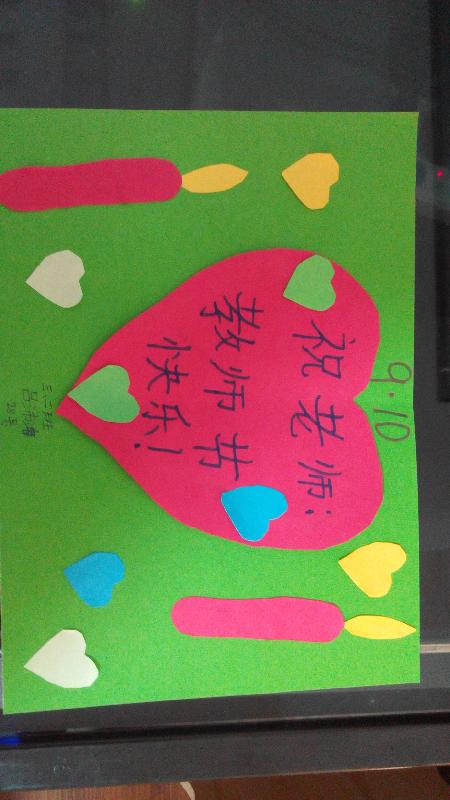 9.10
祝老师:
教师节
快乐!
三二班